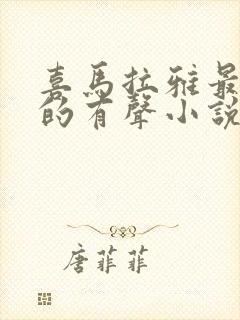 喜馬拉雅最
的有聲小說
唐菲菲